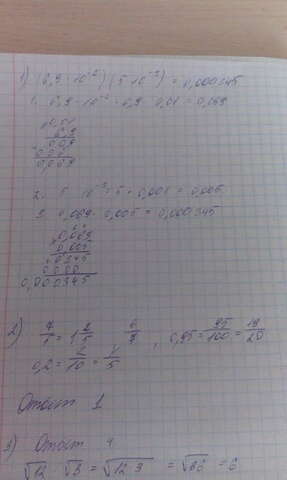 1) (6,9 · 10⁻²) (5 · 10⁻³) = 0,000345
1. 6,9 · 10⁻² = 6,9 · 0,01 = 0,069
0,01
6,9
009
0,069
2. 5 · 10⁻³ = 5 · 0,001 = 0,005
3. 0,069 · 0,005 = 0,000345
0,069
0,005
0345
0000
0,000345
2) = 1 2/5 , 0,95 = 95/100 = 19/20
0,2 = 2/10 = 1/5
Ответ 1
3) Ответ 4
√12 · √3 = √12·3 = √36 = 6